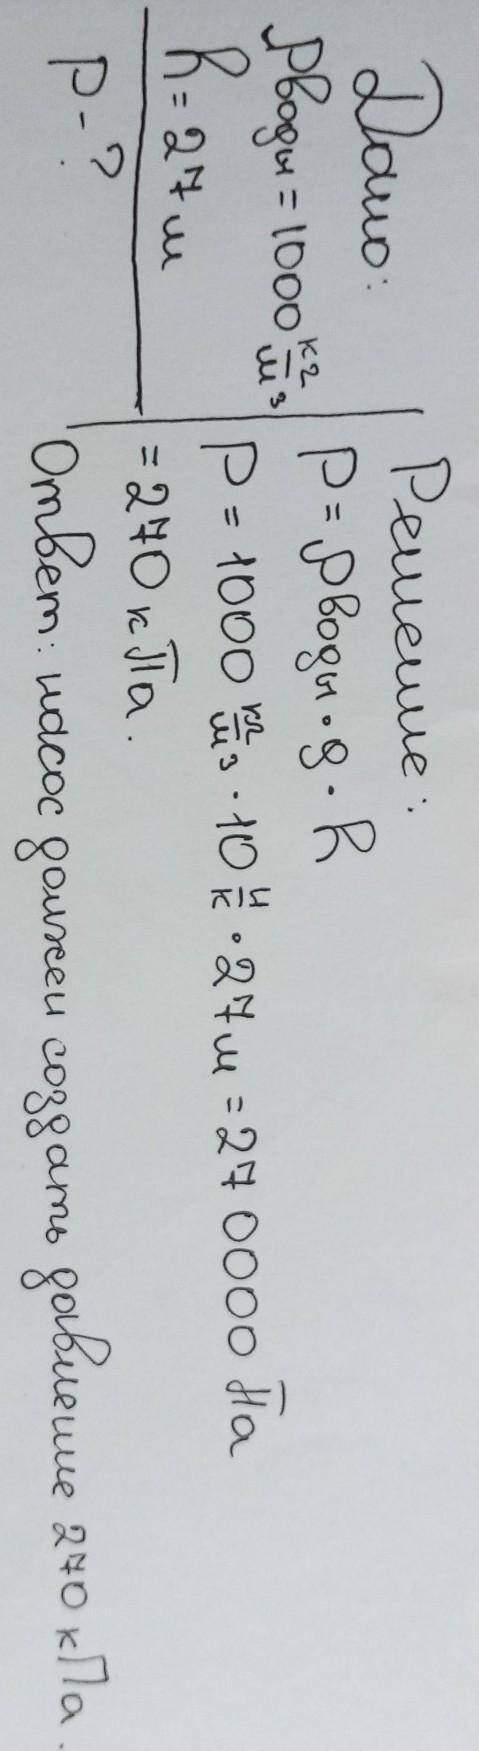 Дано:
ρводы = 1000 кг/м³
h = 27 м
P - ?
Решение:
P = ρводы · g · h
P = 1000 кг/м³ · 10 Н/к · 27 м = 270000 Па
= 270 кПа.
Ответ: насос должен создать давление 270 кПа.